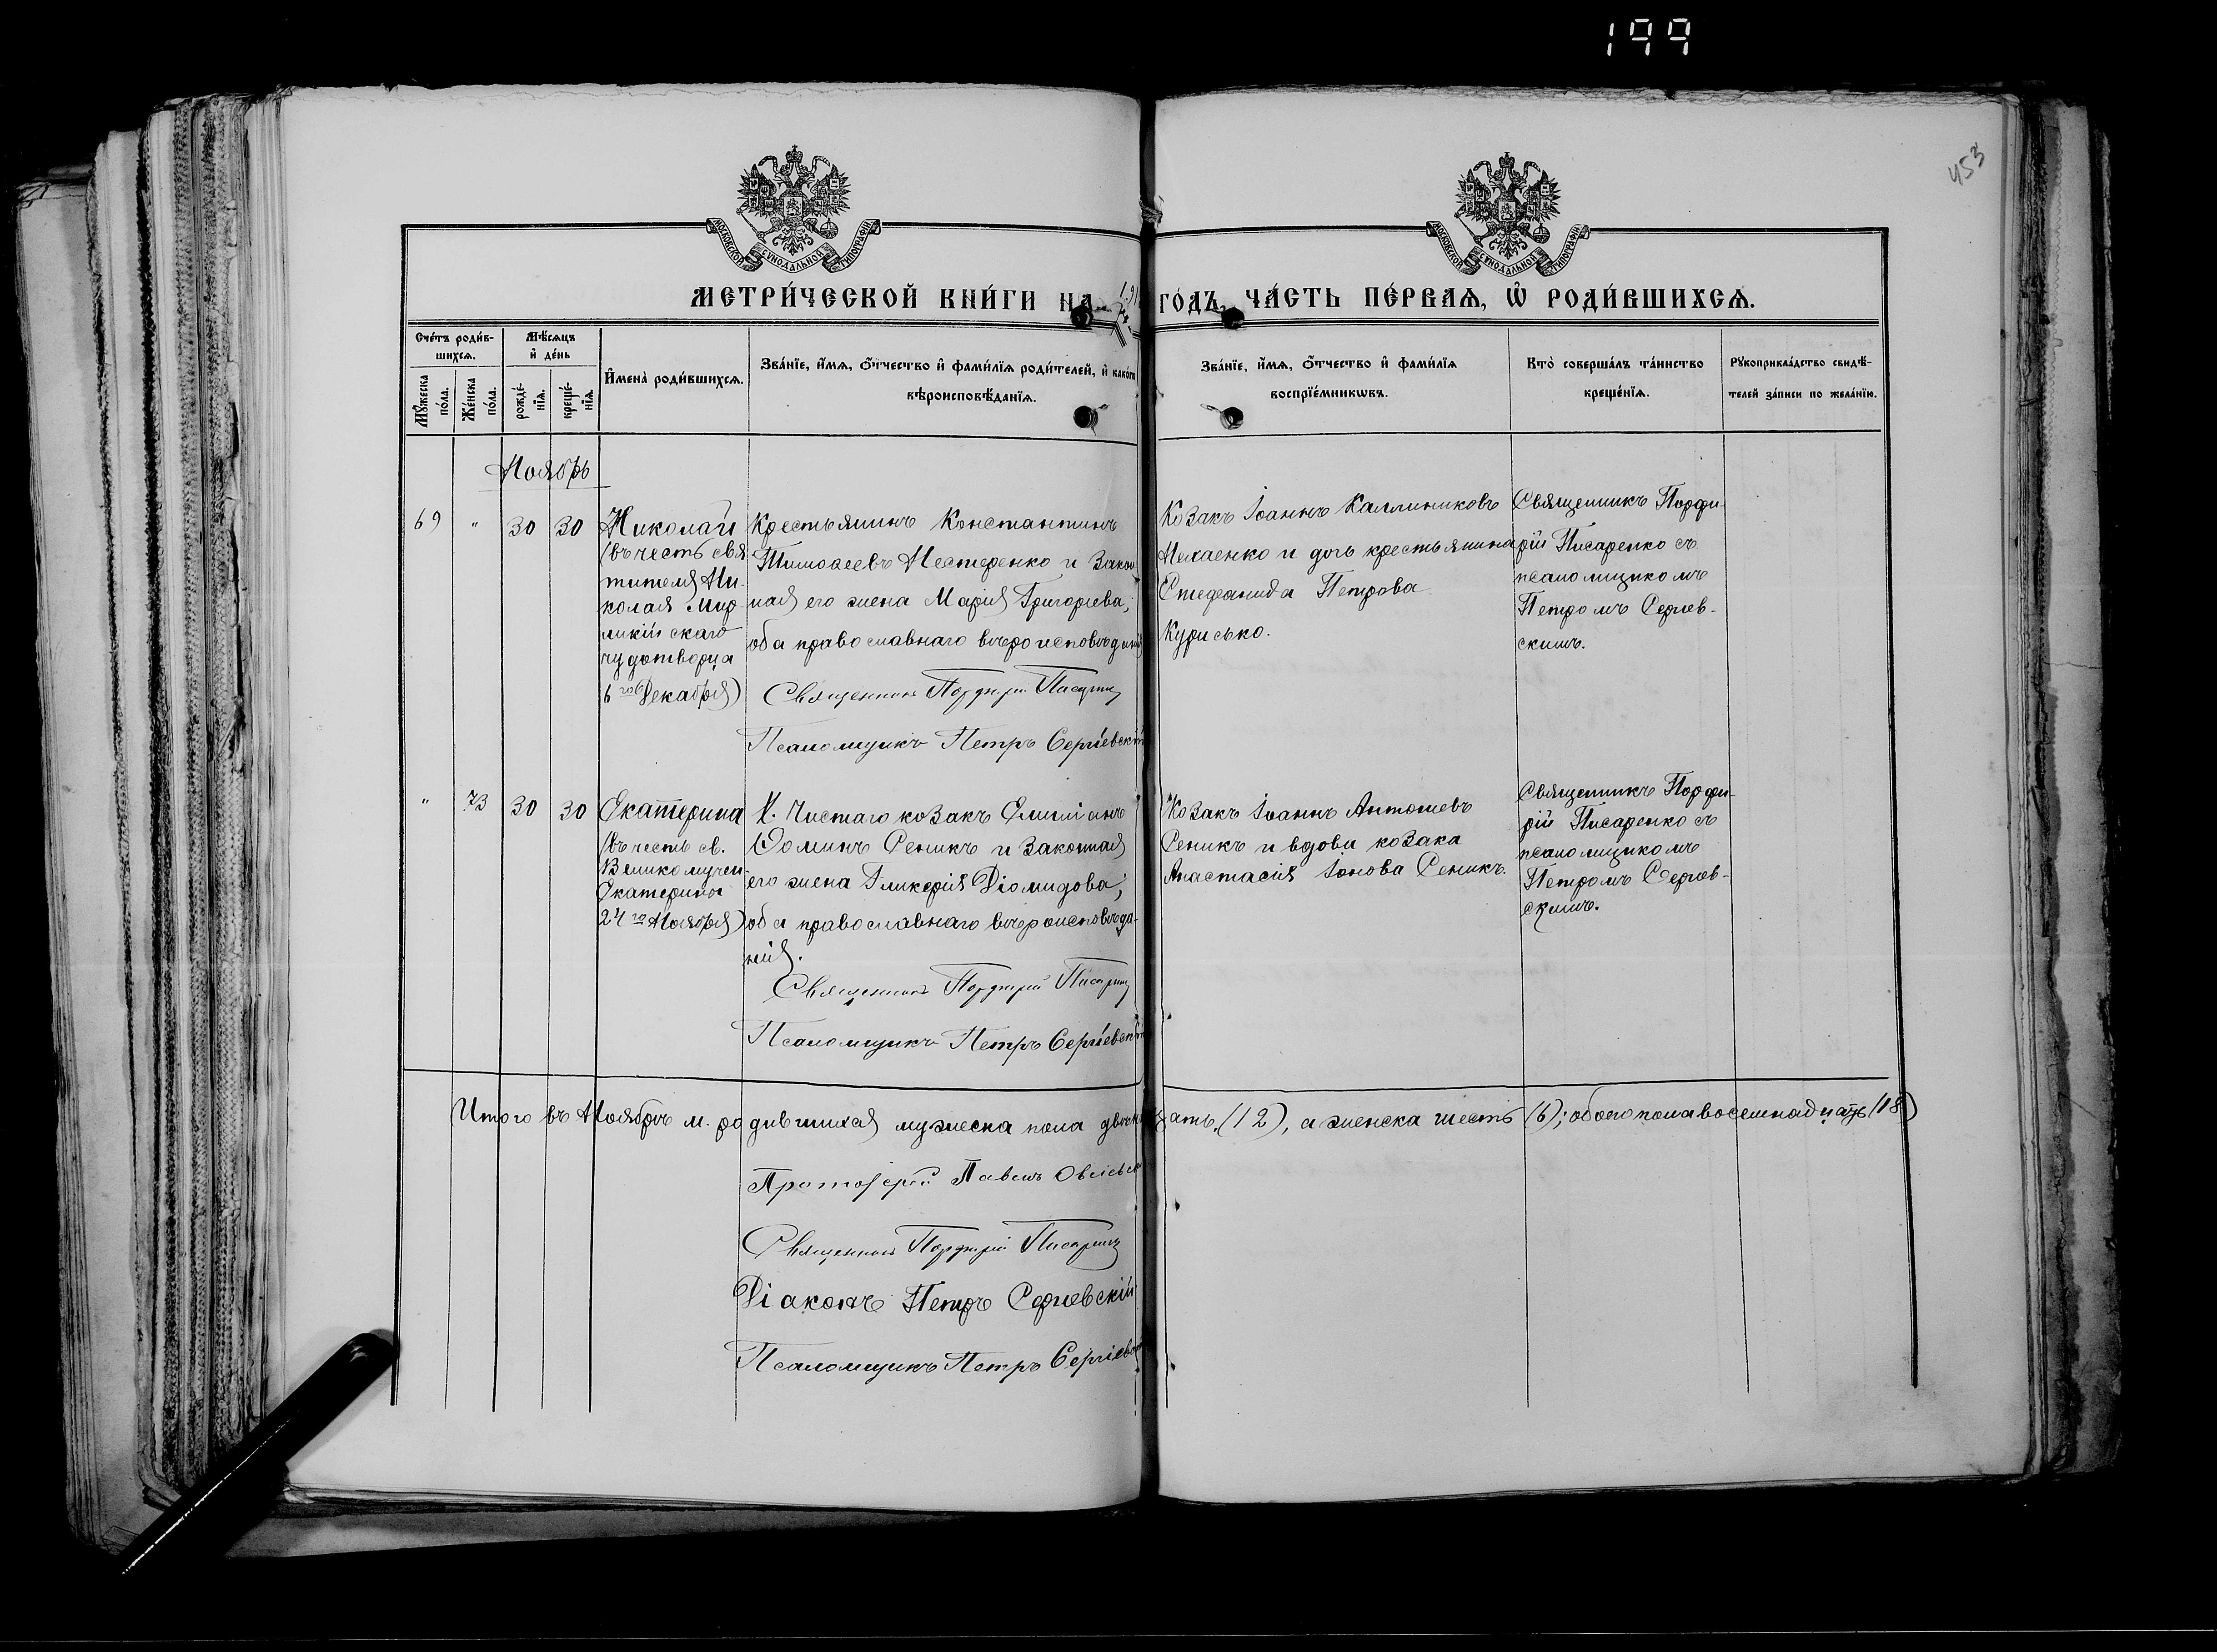 199
453
МОСКОВСКОЙ СѴНОДАЛЬНОЙ ТИПОГРАФІИ
МОСКОВСКОЙ СѴНОДАЛЬНОЙ ТИПОГРАФІИ
МЕТРИ́ЧЕСКОЙ КНИ́ГИ НА ГО́ДЪ, ЧА́СТЬ ПЕ́РВАѦ, Ѡ҆ РОДИ́ВШИХСѦ.
Сче́тъ роди́в-
шихсѧ.
Мꙋ́жеска
по́ла.
Же́нска
по́ла.
Мѣ́сѧцъ
и҆ де́нь
рожде́-
нїѧ.
креще́-
нїѧ.
И҆мена̀ роди́вшихсѧ.
Зва́нїе, и҆́мѧ, ѻ҆́тчество и҆ фами́лїѧ роди́телей, и҆ како́гѡ
вѣроисповѣ́данїѧ.
Зва́нїе, и҆́мѧ, ѻ҆́тчество и҆ фами́лїѧ
воспрїе́мникѡвъ.
Кто̀ соверша́лъ та́инство
креще́нїѧ.
Рꙋкоприкла́дство свидѣ́-
телей за́писи по жела́нїю.
Ноябрь
69 " 30 30
Николай
(въ честь свя-
тителя Ни-
колая Мир-
ликійскаго
чудотворца
6го Декабря)
Крестьянинъ Константинъ
Тимоѳеевъ Нестеренко и закон-
ная его жена Марія Григорiева;
оба православнаго вѣроисповѣданія
Священникъ Порфирій Писаренко
Псаломщикъ Петръ Сергіевскій
Козакъ Іоаннъ Каллиниковъ
Нехаенко и дочь крестьянина
Стефанида Петрова
Курисько.
Священникъ Порфи-
рій Писаренко съ
псаломщикомъ
Петромъ Сергіев-
скимъ.
" 73 30 30
Екатерина
(въ честь св.
Великомучен.
Екатерины
24го Ноября)
Х. Чистаго козакъ Емиліанъ
Ѳоминъ Сеникъ и законная
его жена Гликерія Діомидова;
оба православнаго вѣроисповѣда-
нія.
Священникъ Порфирій Писаренко
Псаломщикъ Петръ Сергіевскій
Козакъ Іоаннъ Антоніевъ
Сеникъ и вдова козака
Анастасія Іонова Сеникъ.
Священникъ Порфи-
рій Писаренко съ
псаломщикомъ
Петромъ Сергіев-
скимъ.
Итого въ Ноябрѣ м. родившихся мужеска пола двѣнадцать (12), а женска шесть (6); обоего пола восемнадцать (18)
Протоіерей Павелъ
Священникъ Порфирій Писаренко
Діаконъ Петръ Сергіевскій
Псаломщикъ Петръ Сергіевскій